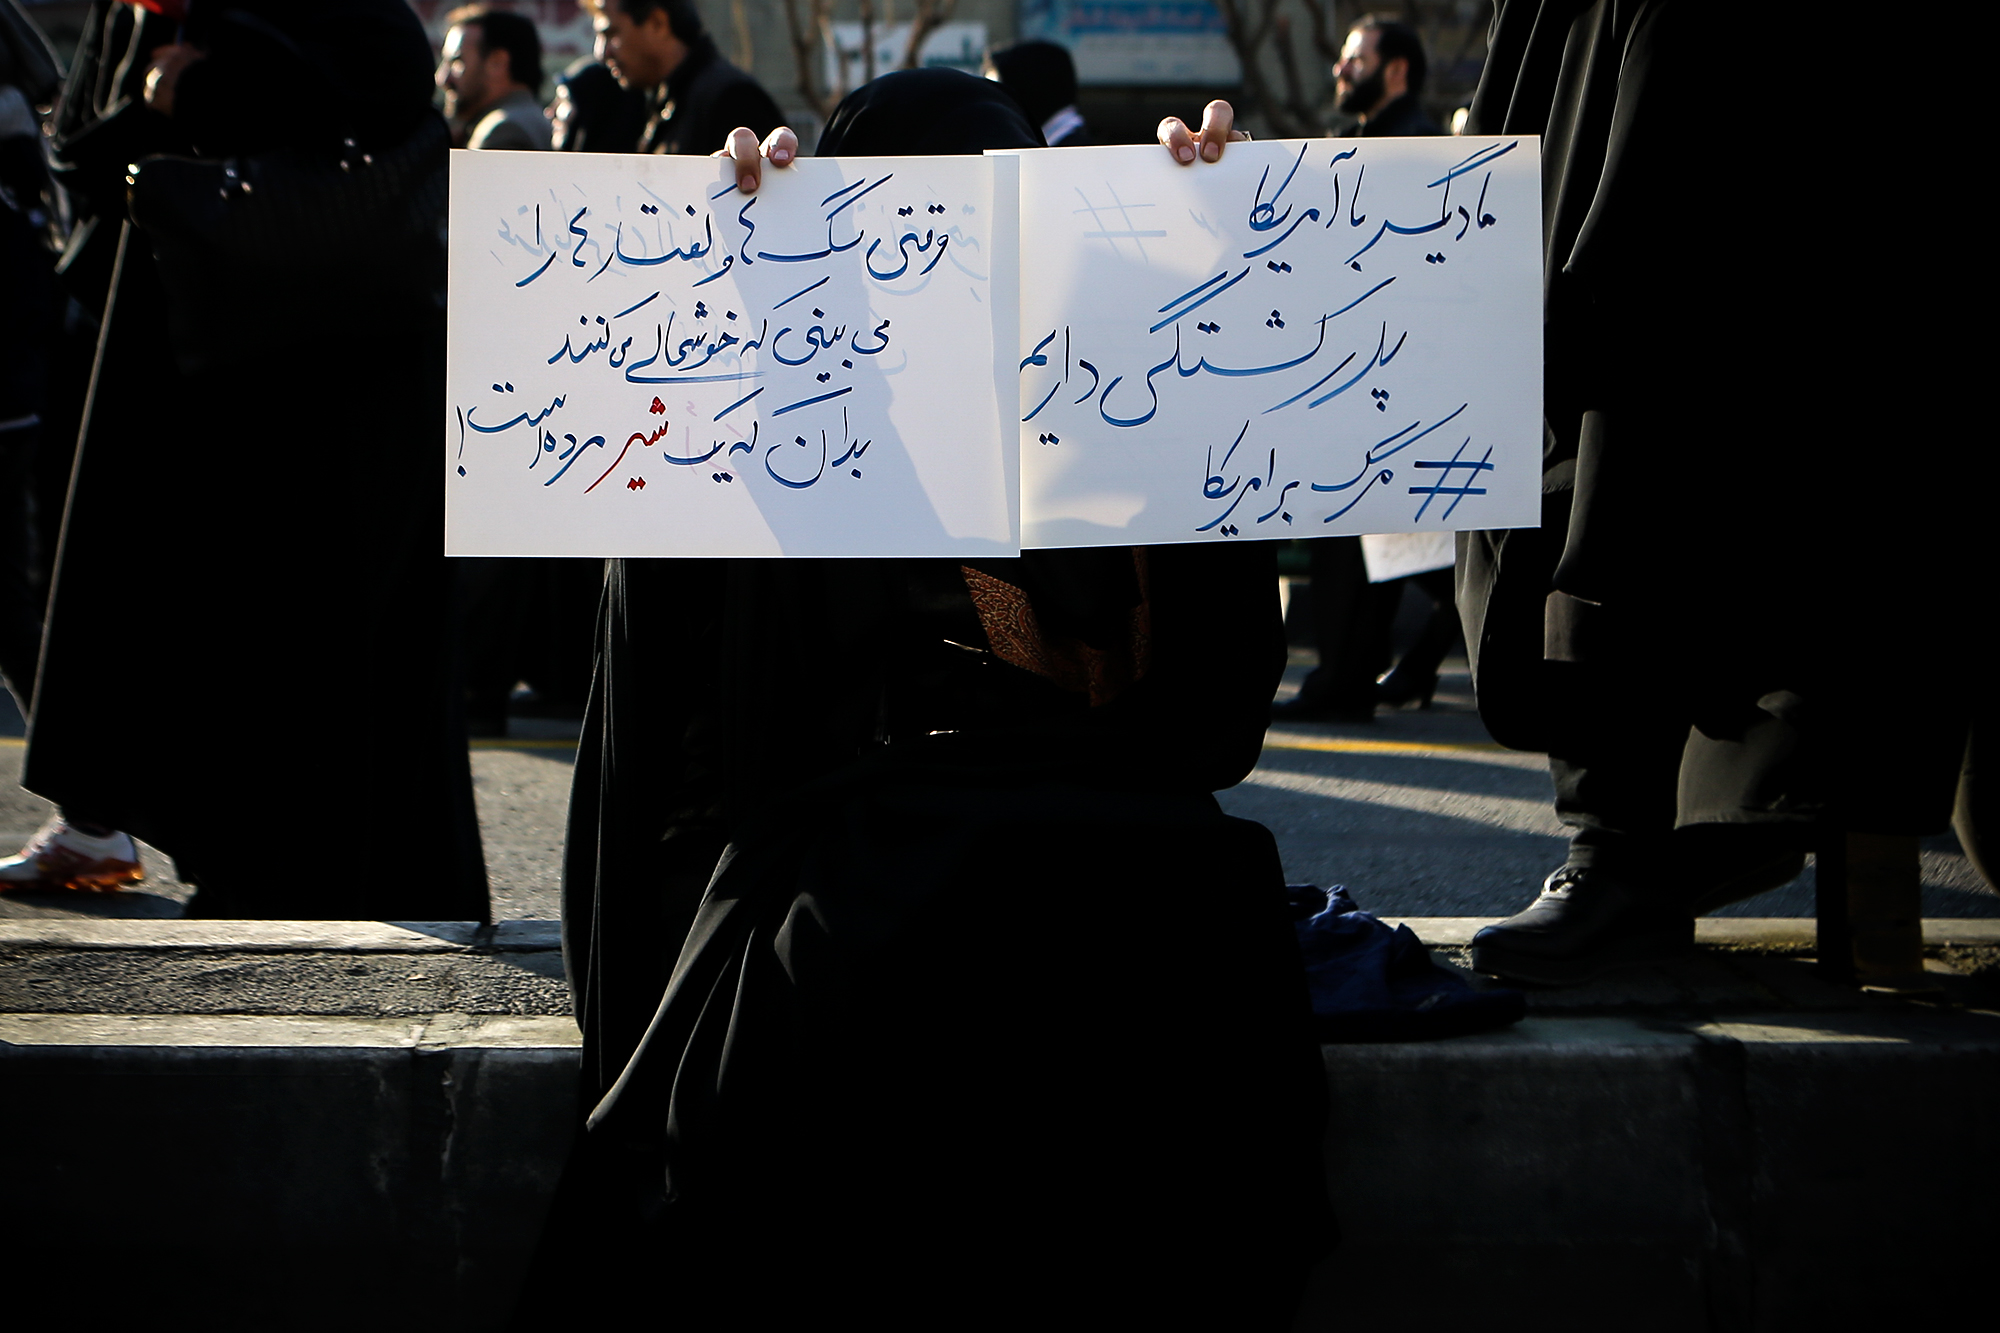 ما دیگر با آمریکا
پدرکشتگی داریم
# مرگ بر امریکا
وقتی سگ ها و کفتارها را
می بینی که خوشحالی می کنند
بدان که یک شیر مرده است!
#